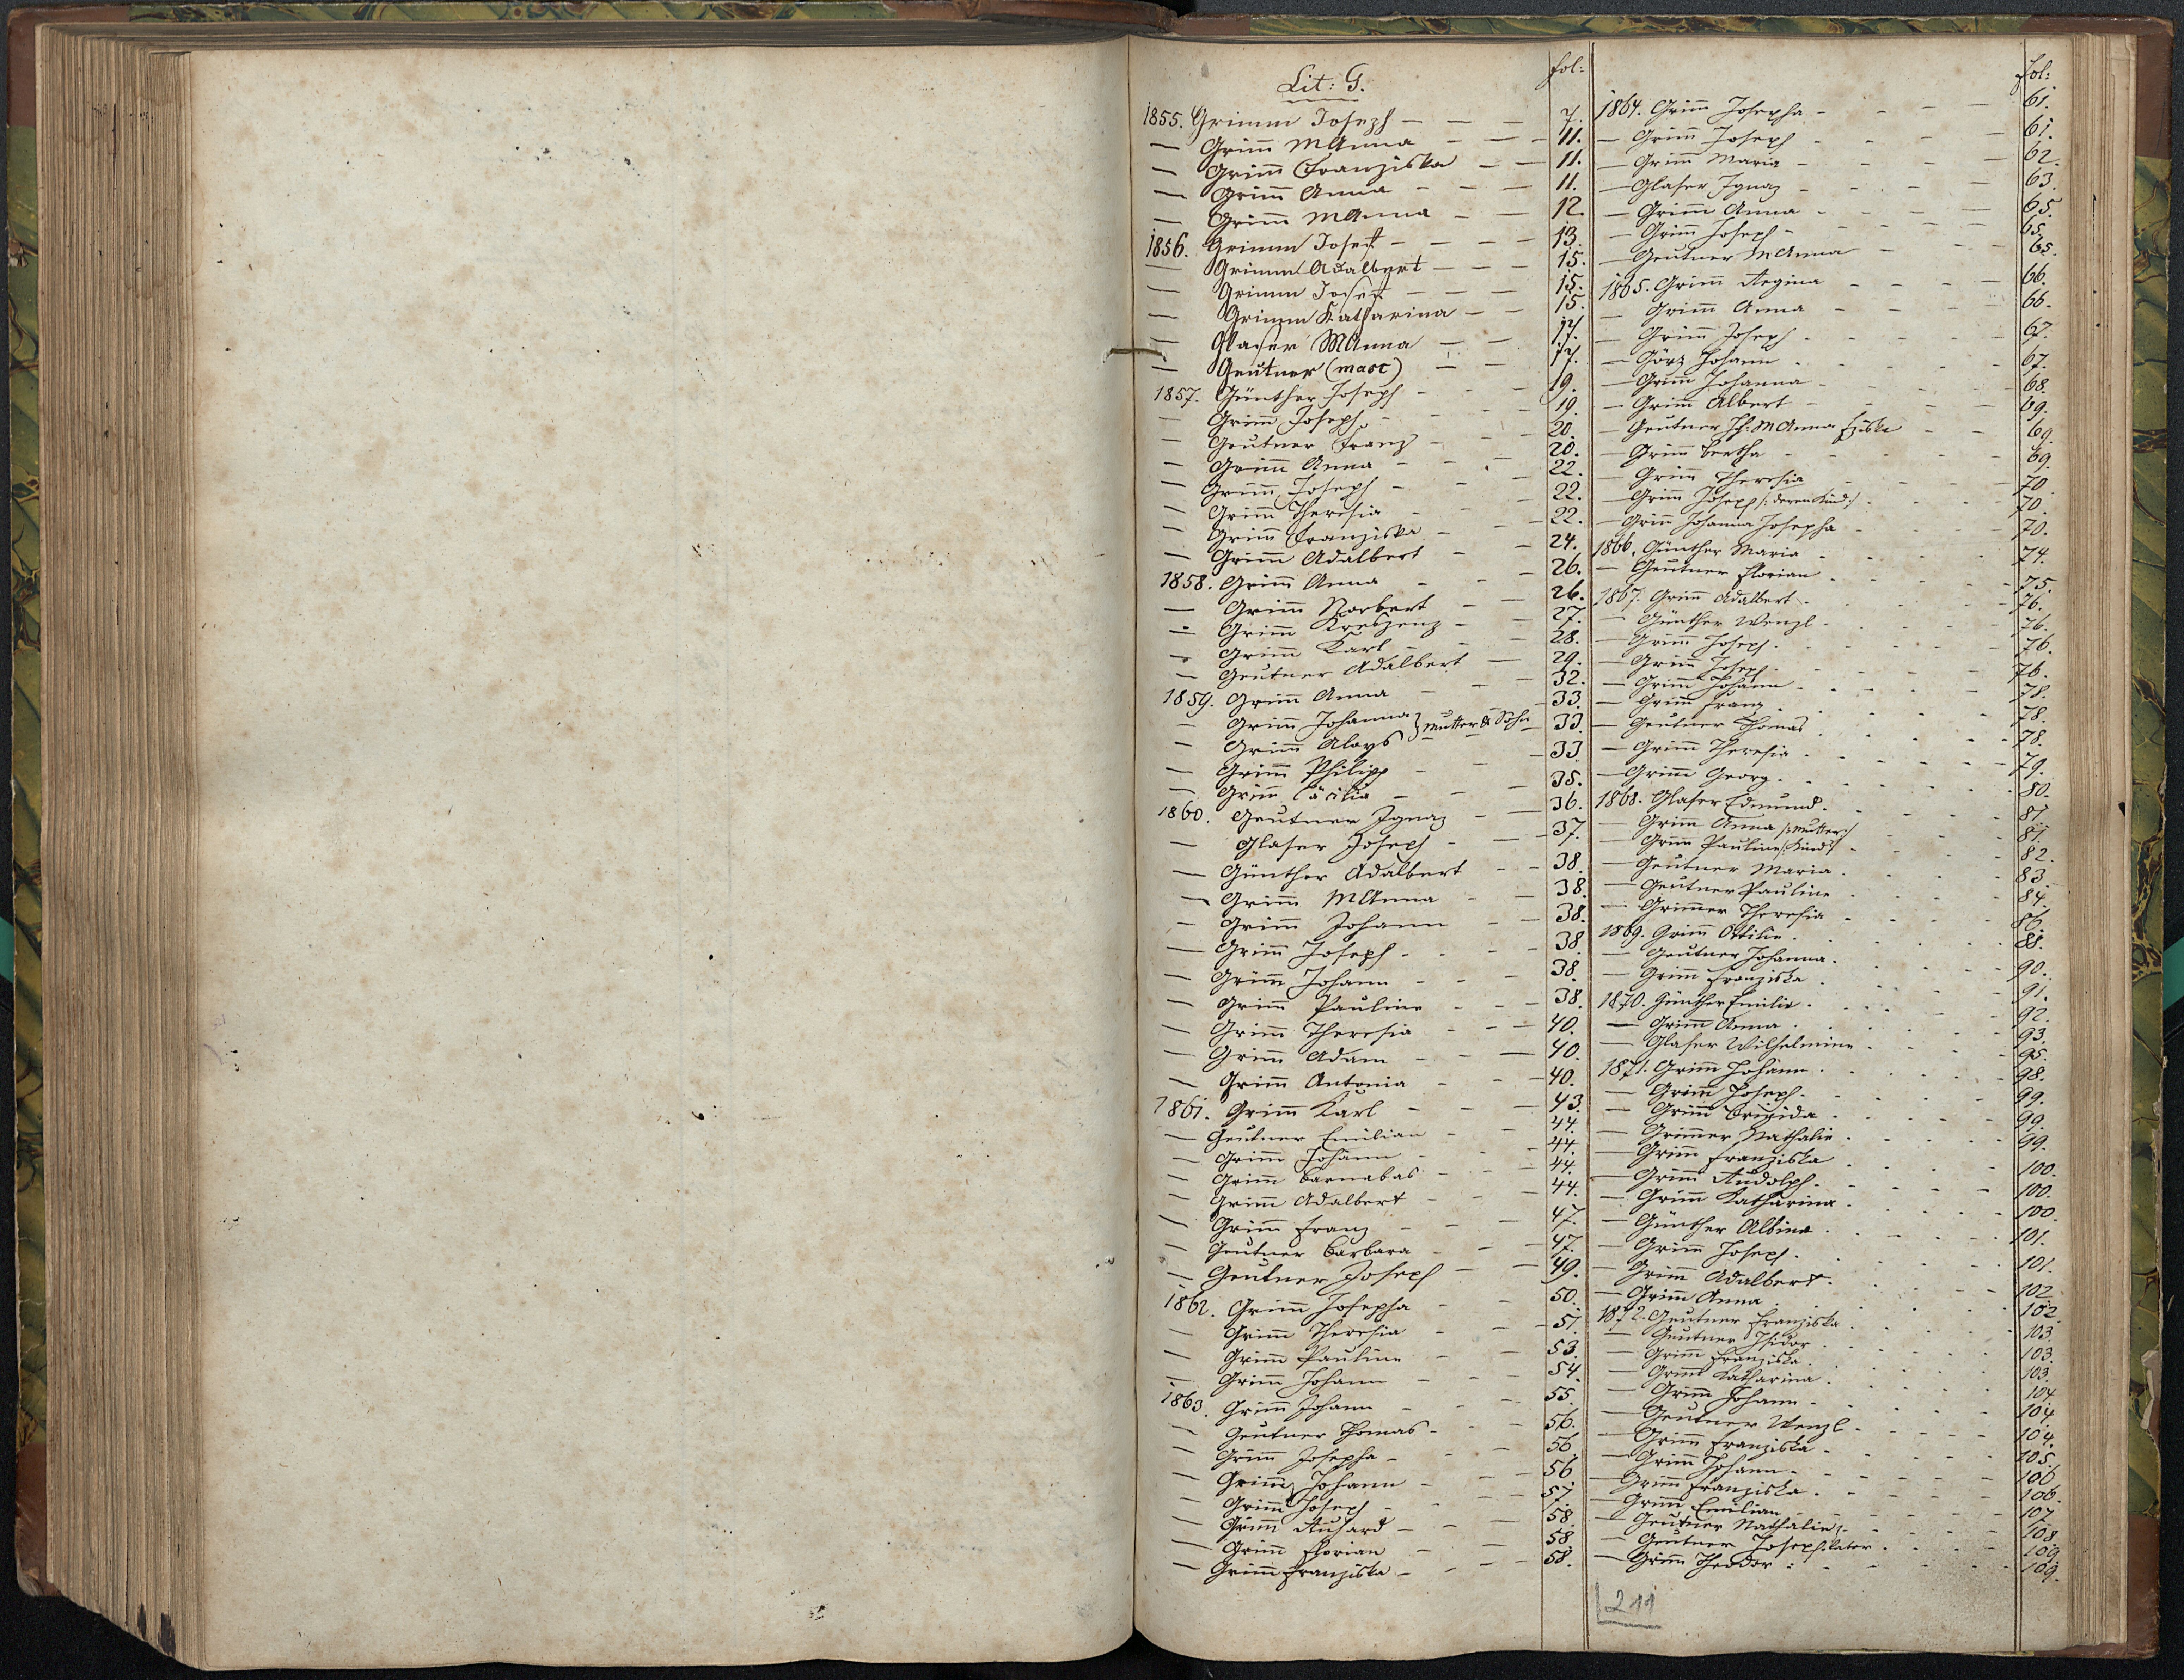 Lit: G.
fol:
1855. Grimm Joseph - - - 7.
— Grim̄ MAnna - - - 11.
— Grim̄ Franziska - - 11.
— Grim̄ Anna - - - 11.
— Grim̄ MAnna - - 12.
1856. Grimm Josef - - - - 13.
— Grimm Adalbert - - - 15.
— Grimm Josef - - - 15.
— Grimm Katharina - - 15.
— Glaser MAnna - - 17.
— Geutner (mast) - - 17.
1857. Günther Joseph - - - 19.
— Grim̄ Joseph - - - 19.
— Geutner Franz - - - 20.
— Grim̄ Anna - - - 20.
— Grim̄ Joseph - - - 22.
— Grim̄ Theresia - - - 22.
— Grim̄ Franziska - - - 22.
— Grim̄ Adalbert - - 24.
1858. Grim̄ Anna - - - 26.
— Grim̄ Norbert - - 26.
— Grim̄ Kreszenz - - 27.
— Grim̄ Karl - - - 28.
— Geutner Adalbert - 29.
1859. Grim̄ Anna - - - 32.
— Grim̄ Johanna } Mutter & Sohn 33.
— Grim̄ Aloys 33.
— Grim̄ Philipp - - - 33
— Grim̄ Cäcilia - - - 35.
1860. Geutner Ignaz - - 36.
— Glaser Joseph - - 37.
— Günther Adalbert - - 38.
— Grim̄ MAnna - - 38.
— Grim̄ Johann - - 38.
— Grim̄ Joseph - - - 38
— Grim̄ Johann - - - 38.
— Grim̄ Pauline - - - 38.
— Grim̄ Theresia - - - 40.
— Grim̄ Adam - - - 40.
— Grim̄ Antonia - - - 40.
1861. Grim̄ Karl - - - 43.
— Geutner Emilian - - 44.
— Grim̄ Johann - - - 44.
— Grim̄ Barnabas - - - 44.
— Grim̄ Adalbert - - - 44.
— Grim̄ Franz - - - 47.
— Geutner Barbara - - - 47.
— Geutner Joseph - - 49.
1862. Grim̄ Josepha - - 50.
— Grim̄ Theresia - - - 51.
— Grim̄ Pauline - - 53.
— Grim̄ Johann - - - 54.
1863. Grim̄ Johann - - - 55.
— Geutner Thomas - - - 56.
— Grim̄ Josepha - - - 56.
— Grim̄ Johann - - - 56
— Grim̄ Joseph - - - 57.
— Grim̄ - - - 58.
— Grim̄ Florian - - - 58.
— Grim̄ Franziska - - - 58.
fol:
1864. Grim̄ Josepha - - - 61.
— Grim̄ Joseph - - - 61.
— Grim̄ Maria - - - 62.
— Glaser Ignaz - - - 63.
— Grim̄ Anna - - - 65.
— Grim̄ Joseph - - - 65.
— Geutner MAnna - - 65.
1865. Grim̄ Regina - - - 66.
— Grim̄ Anna - - - 66.
— Grim̄ Joseph - - - 67.
— Görz Johann - - - 67.
— Grim̄ Johanna - - - 68.
— Grim̄ Albert - - - 69.
— Geutner MAnna - - 69.
— Grim̄ Bertha - - - 69.
— Grim̄ Theresia - - - 70.
— Grim̄ Joseph /: deren Kind :/ 70.
— Grim̄ Johanna Josepha - - 70.
1866. Günther Maria - - - 74.
— Geutner Florian - - - 75.
1867. Grim̄ Adalbert - - - 76.
— Günther Wenzl - - - 76.
— Grim̄ Joseph - - - 76.
— Grim̄ Joseph - - - 76.
— Grim̄ Johann - - - 78.
— Grim̄ Franz - - - 78.
— Geutner Thomas - - - 78.
— Grim̄ Theresia - - - 79.
— Grim̄ Georg - - - 80.
1868. Glaser Edmund - - - 81.
— Grim̄ Anna /: Mutter :/ 81.
— Grim̄ Pauline /: Kind :/ 82.
— Geutner Maria - - - 83.
— Geutner Pauline - - - 84.
— Grim̄er Theresia - - - 86.
1869. Grim̄ Ottilie - - - 88.
— Geutner Johanna - - - 90.
— Grim̄ Franziska - - - 91.
1870. Günther Emilie - - - 92.
— Grim̄ Anna - - - 93.
— Glaser Wilhelmine - - - 95.
1871. Grim̄ Johann - - - 98.
— Grim̄ Joseph - - - 99.
— Grim̄ Brigida - - - 99.
— Grim̄er Nathalie - - - 99.
— Grim̄ Franziska - - - 100.
— Grim̄ Rudolph - - - 100.
— Grim̄ Katharina - - - 100.
— Günther Albina - - - 101.
— Grim̄ Joseph - - - 101.
— Grim̄ Adalbert - - - 102.
— Grim̄ Anna - - - 102.
1872. Geutner Franziska - - - 103.
— Geutner Isidor - - - 103.
— Grim̄ Franziska - - - 103.
— Grim̄ Katharina - - - 104
— Grim̄ Johann - - - 104
— Geutner Wenzl - - - 104.
— Grim̄ Franziska - - - 105.
— Grim̄ Johann - - - 106
— Grim̄ Franziska - - - 106.
— Grim̄ Emilian - - - 107.
— Geutner Nathalie - - - 108.
— Geutner - - - 109
— Grim̄ Theodor - - - 109.
211